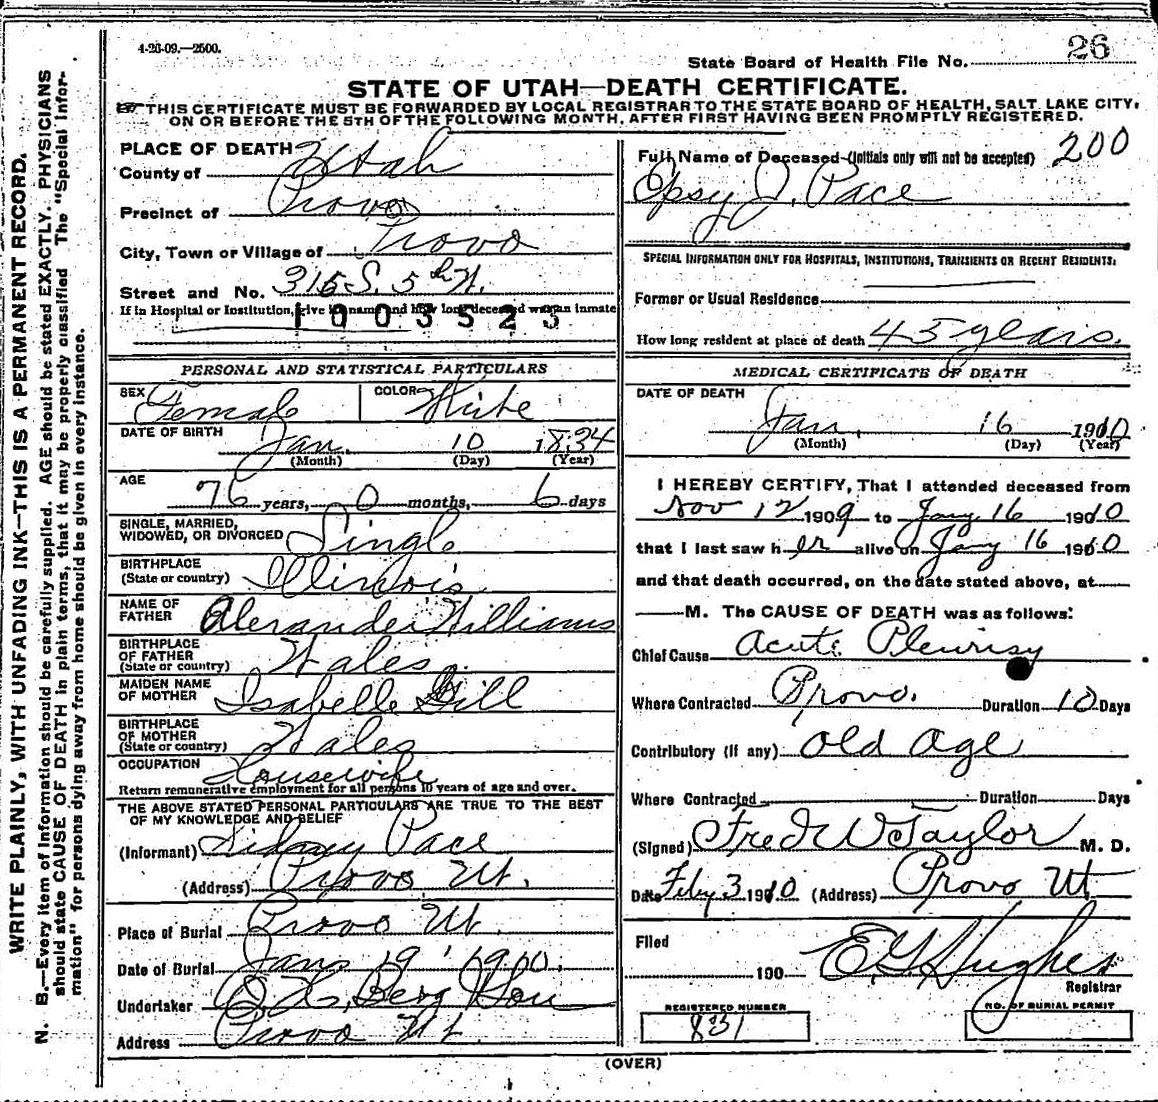 4-26-09.—2500.
State Board of Health File No. 26
STATE OF UTAH—DEATH CERTIFICATE.
THIS CERTIFICATE MUST BE FORWARDED BY LOCAL REGISTRAR TO THE STATE BOARD OF HEALTH, SALT LAKE CITY,
ON OR BEFORE THE 5TH OF THE FOLLOWING MONTH, AFTER FIRST HAVING BEEN PROMPTLY REGISTERED.
WRITE PLAINLY, WITH UNFADING INK—THIS IS A PERMANENT RECORD.
N. B.—Every item of information should be carefully supplied. AGE should be stated EXACTLY. PHYSICIANS
should state CAUSE OF DEATH in plain terms, that it may be properly classified. The "Special Infor-
mation" for persons dying away from home should be given in every instance.
PLACE OF DEATH
County of Utah
Precinct of Provo
City, Town or Village of Provo
Street and No. 315 S. 5th W.
If in Hospital or Institution, give its name and how long deceased was an inmate
1003523
PERSONAL AND STATISTICAL PARTICULARS
SEX Female COLOR White
DATE OF BIRTH Jan. 10 1834
(Month) (Day) (Year)
AGE
76 years, 0 months, 6 days
SINGLE, MARRIED,
WIDOWED, OR DIVORCED Single
BIRTHPLACE
(State or country) Illinois
NAME OF
FATHER Alexander Williams
BIRTHPLACE
OF FATHER
(State or country) Wales
MAIDEN NAME
OF MOTHER Isabelle Gill
BIRTHPLACE
OF MOTHER
(State or country) Wales
OCCUPATION Housewife
Return remunerative employment for all persons 10 years of age and over.
THE ABOVE STATED PERSONAL PARTICULARS ARE TRUE TO THE BEST
OF MY KNOWLEDGE AND BELIEF
(Informant) Sidney Pace
(Address) Provo Ut.
Place of Burial Provo Ut.
Date of Burial Jany 19' 1910.
Undertaker Berg
Address Provo Ut.
Full Name of Deceased (Initials only will not be accepted) 200
Epsy J. Pace
SPECIAL INFORMATION ONLY FOR HOSPITALS, INSTITUTIONS, TRANSIENTS OR RECENT RESIDENTS:
Former or Usual Residence
How long resident at place of death 45 years.
MEDICAL CERTIFICATE OF DEATH
DATE OF DEATH
Jan. 16 1910
(Month) (Day) (Year)
I HEREBY CERTIFY, That I attended deceased from
Nov 12 1909 to Jany 16 1910
that I last saw her alive on Jany 16 1910
and that death occurred, on the date stated above, at
M. The CAUSE OF DEATH was as follows:
Chief Cause Acute Pleurisy
Where Contracted Provo. Duration 10 Days
Contributory (if any) Old Age
Where Contracted Duration Days
(Signed) Fred W Taylor M. D.
Date Feby 3 1910 (Address) Provo Ut
Filed
190 E G Hughes
Registrar
REGISTERED NUMBER
831
NO. OF BURIAL PERMIT
(OVER)